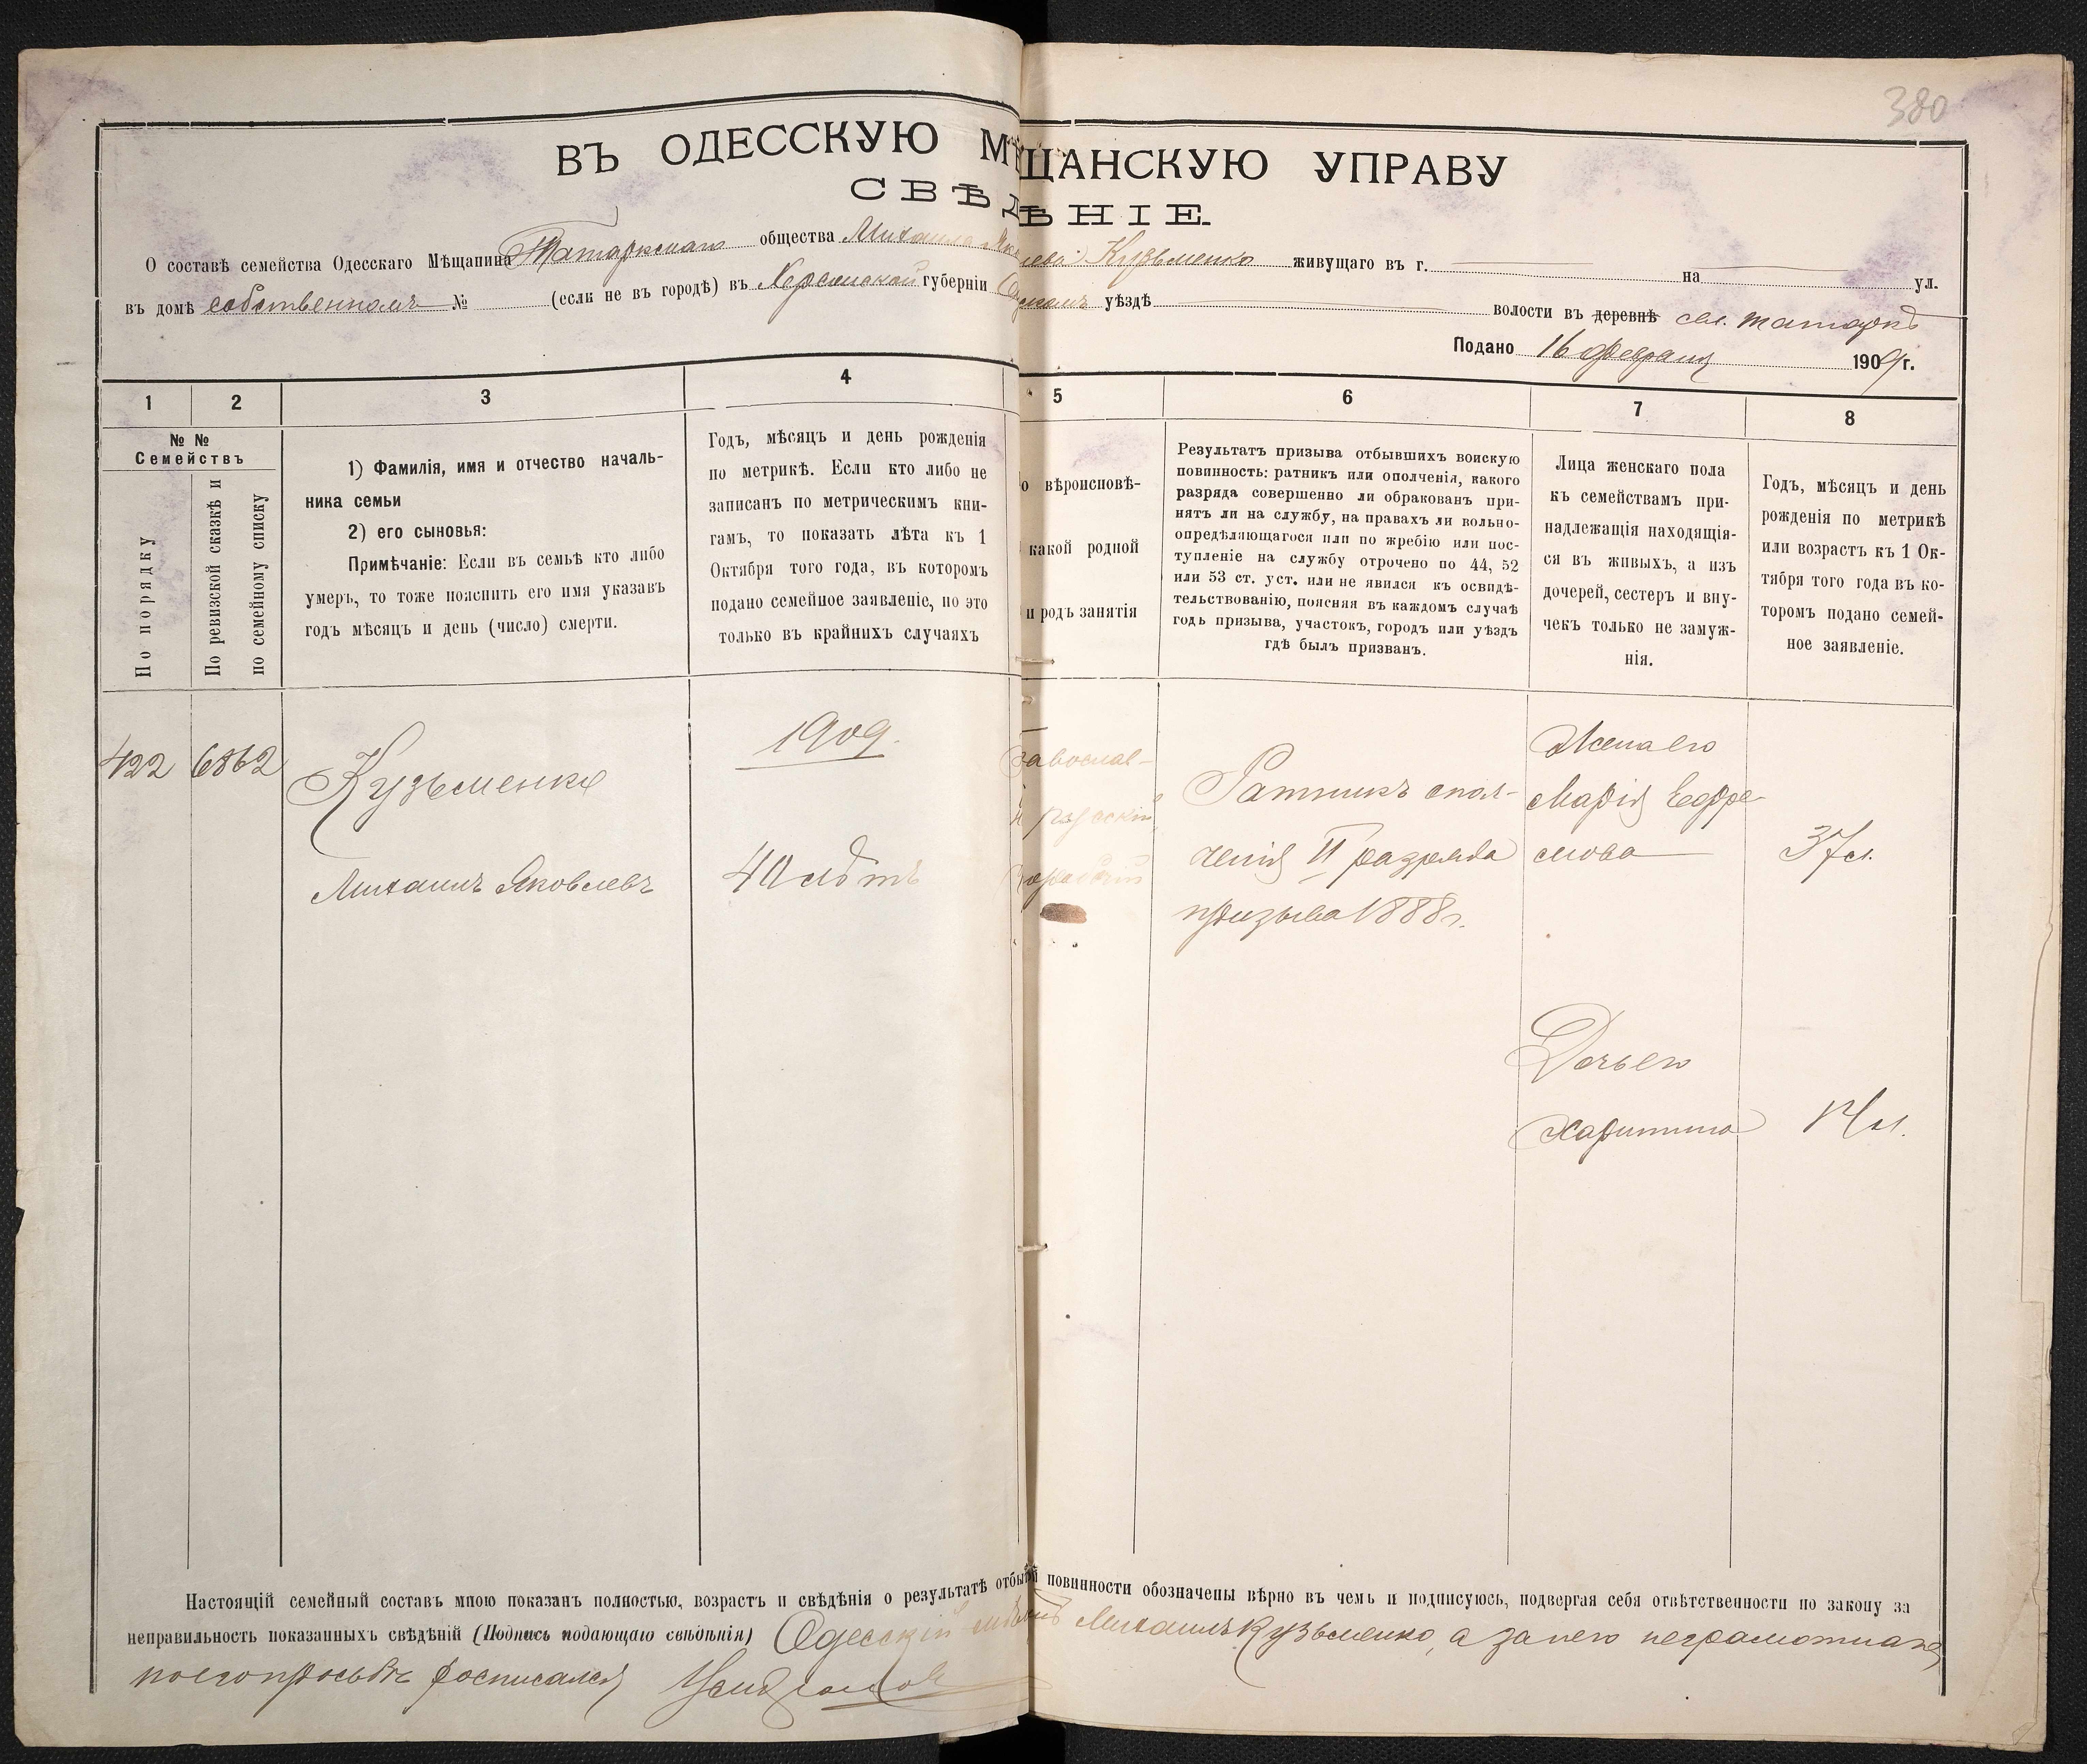 380
ВЪ ОДЕССКУЮ МѢЩАНСКУЮ УПРАВУ
СВѢДѢНІЕ.
О составѣ семейства Одесскаго Мѣщанина Татаркскаго общества Михаила Яковлева Кузьменко живущаго въ г. на ул.
въ домѣ собственномъ № (если не въ городѣ) въ Херсонской губерніи Одескомъ уѣздѣ волости въ деревнѣ сел. Татаркѣ
Подано 16 Февраля 1909 г.
1 2 3 4 5 6 7 8
№ № Семействъ
По порядку
По ревизской сказкѣ и
по семейному списку
1) Фамилія, имя и отчество началь-
ника семьи
2) его сыновья:
Примѣчаніе: Если въ семьѣ кто либо
умеръ, то тоже пояснить его имя указавъ
годъ мѣсяцъ и день (число) смерти.
Годъ, мѣсяцъ и день рожденія
по метрикѣ. Если кто либо не
записанъ по метрическимъ кни-
гамъ, то показать лѣта къ 1
Октября того года, въ которомъ
подано семейное заявленіе, но это
только въ крайнихъ случаяхъ
о вѣроисповѣ-
какой родной
и родъ занятія
Результатъ призыва отбывшихъ воискую
повинность: ратникъ или ополченія, какого
разряда совершенно ли обракованъ при-
нятъ ли на службу, на правахъ ли вольно-
опредѣляющагося или по жребію или пос-
тупленіе на службу отрочено по 44, 52
или 53 ст. уст. или не явился къ освидѣ-
тельствованію, поясняя въ каждомъ случаѣ
годъ призыва, участокъ, городъ или уѣздъ
гдѣ былъ призванъ.
Лица женскаго пола
къ семействамъ при-
надлежащія находящія-
ся въ живыхъ, а изъ
дочерей, сестеръ и вну-
чекъ только не замуж-
нія.
Годъ, мѣсяцъ и день
рожденія по метрикѣ
или возрастъ къ 1 Ок-
тября того года въ ко-
торомъ подано семей-
ное заявленіе.
422 6862
Кузьменко
Михаилъ Яковлевъ
1909.
40 лѣтъ
авослав-
й русскій
Ратникъ опол-
ченія II разряда
призыва 1888 г.
Жена его
Марія Ефре-
мова
37 л.
Дочь его
Харитина
17 л.
Настоящій семейный составъ мною показанъ полностью, возрастъ и свѣдѣнія о результатѣ отбытій повинности обозначены вѣрно въ чемъ и подписуюсь, подвергая себя отвѣтственности по закону за
неправильность показанныхъ свѣдѣній (Подпись подающаго свѣдѣнія) Одесскій мѣщанъ Михаилъ Кузьменко, а за него неграмотнаго
по его просьбѣ росписался